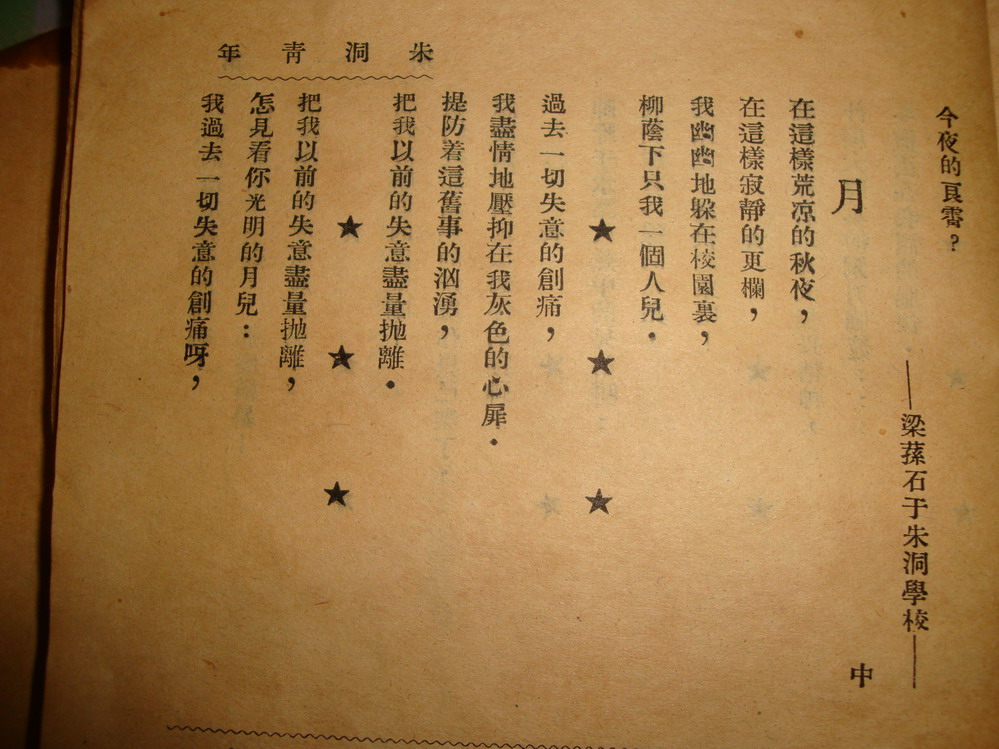 朱洞青年
今夜的良霄？
——梁蓀石于朱洞學校——
月
中
在這樣荒凉的秋夜，
在這樣寂靜的更欄，
我幽幽地躲在校園裏，
柳蔭下只我一個人兒．
★ ★ ★
過去一切失意的創痛，
我盡情地壓抑在我灰色的心扉．
提防着這舊事的汹湧，
把我以前的失意盡量抛離．
★ ★ ★
把我以前的失意盡量抛離，
怎見看你光明的月兒：
我過去一切失意的創痛呀，